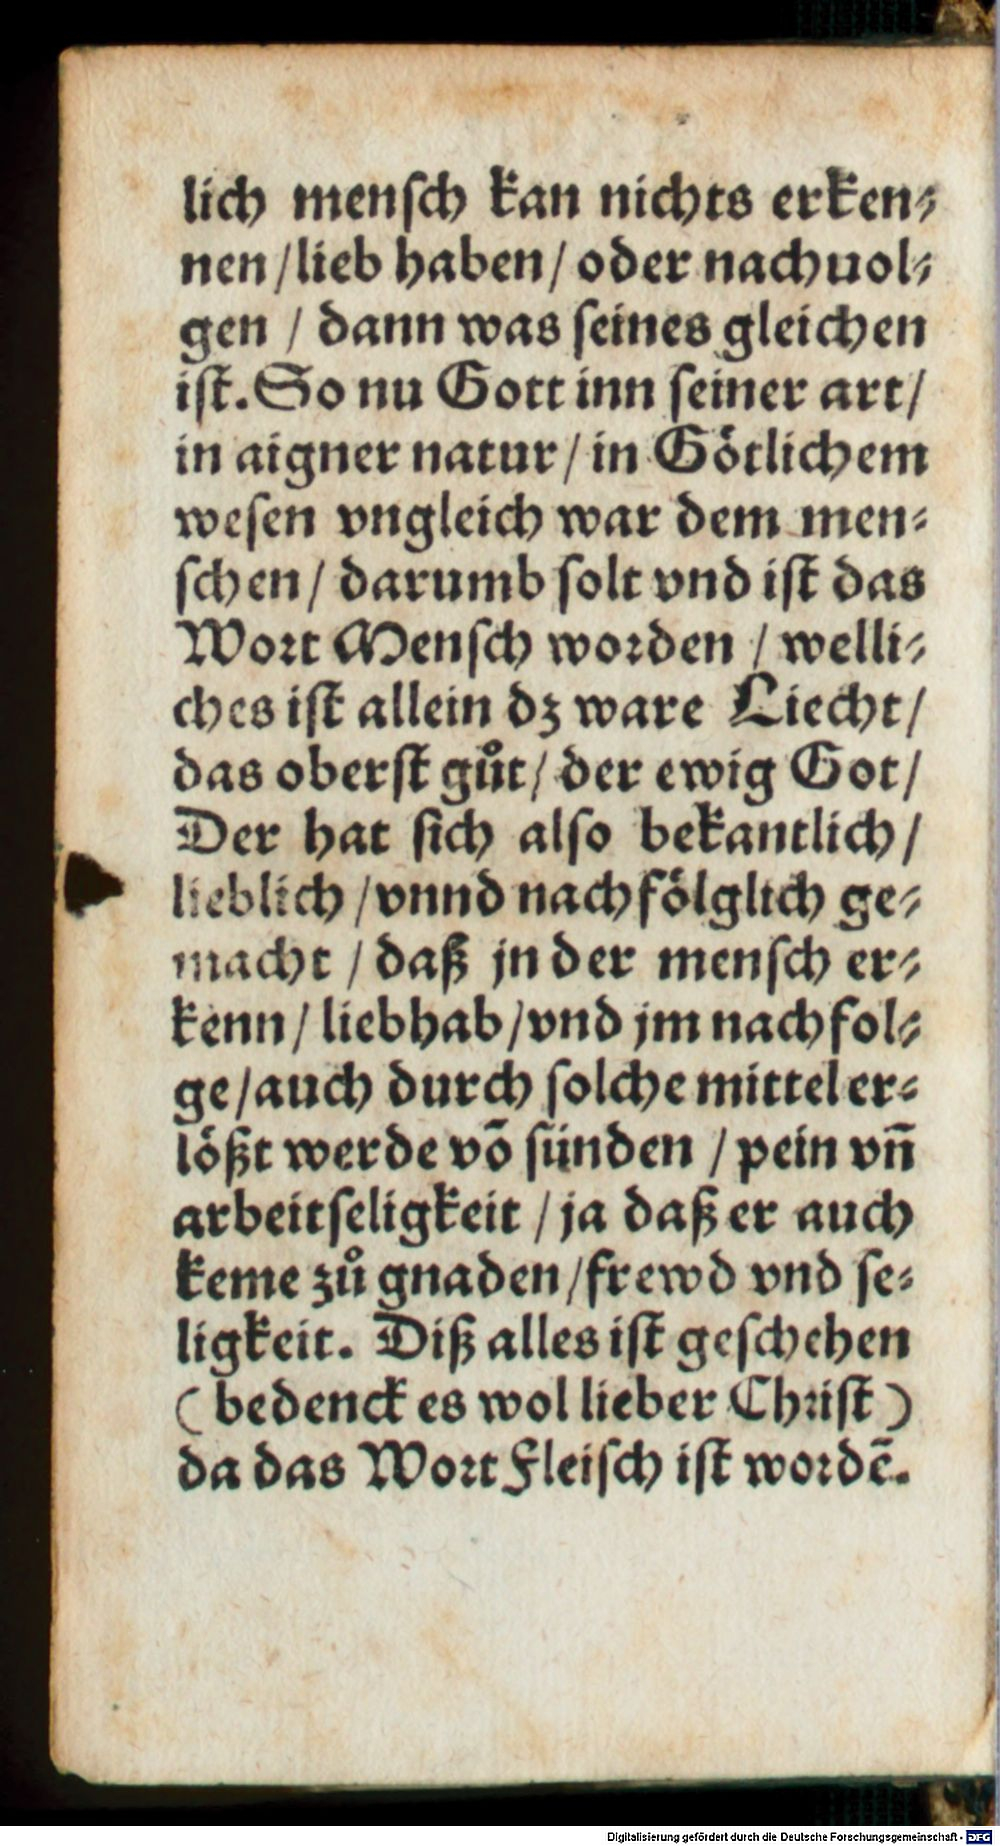 lich menſch kan nichts erken⸗
nen / lieb haben / oder nachuol⸗
gen / dann was ſeines gleichen
iſt. So nu Gott inn ſeiner art /
in aigner natur / in Goͤtlichem
weſen vngleich war dem men⸗
ſchen / darumb ſolt vnd iſt das
Wort Menſch worden / welli⸗
ches iſt allein dz ware Liecht /
das oberſt guͦt / der ewig Got /
Der hat ſich alſo bekantlich /
lieblich / vnnd nachfoͤlglich ge⸗
macht / daß jn der menſch er⸗
kenn / liebhab / vnd jm nachfol⸗
ge / auch durch ſolche mittel er⸗
loͤßt werde võ ſünden / pein vn̄
arbeitſeligkeit / ja daß er auch
keme zuͦ gnaden / frewd vnd ſe⸗
ligkeit. Diß alles iſt geſchehen
( bedenck es wol lieber Chriſt )
da das Wort Fleiſch iſt wordē.
Digitalisierung gefördert durch die Deutsche Forschungsgemeinschaft - DFG